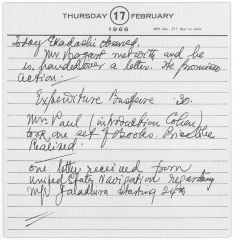 THURSDAY 17 FEBRUARY
1966
48th day - 317 days to come
Today Ekadashi observed.
Mr. Bogart met with and he
is handed over a letter. He promised
action.
Expenditure Busfare .30.
Mr. Paul (introduction Cohen)
took one set of Books. Price to be
Realised.
one letter received from
United States Navigation regarding
M/V Jaladhura starting 24th